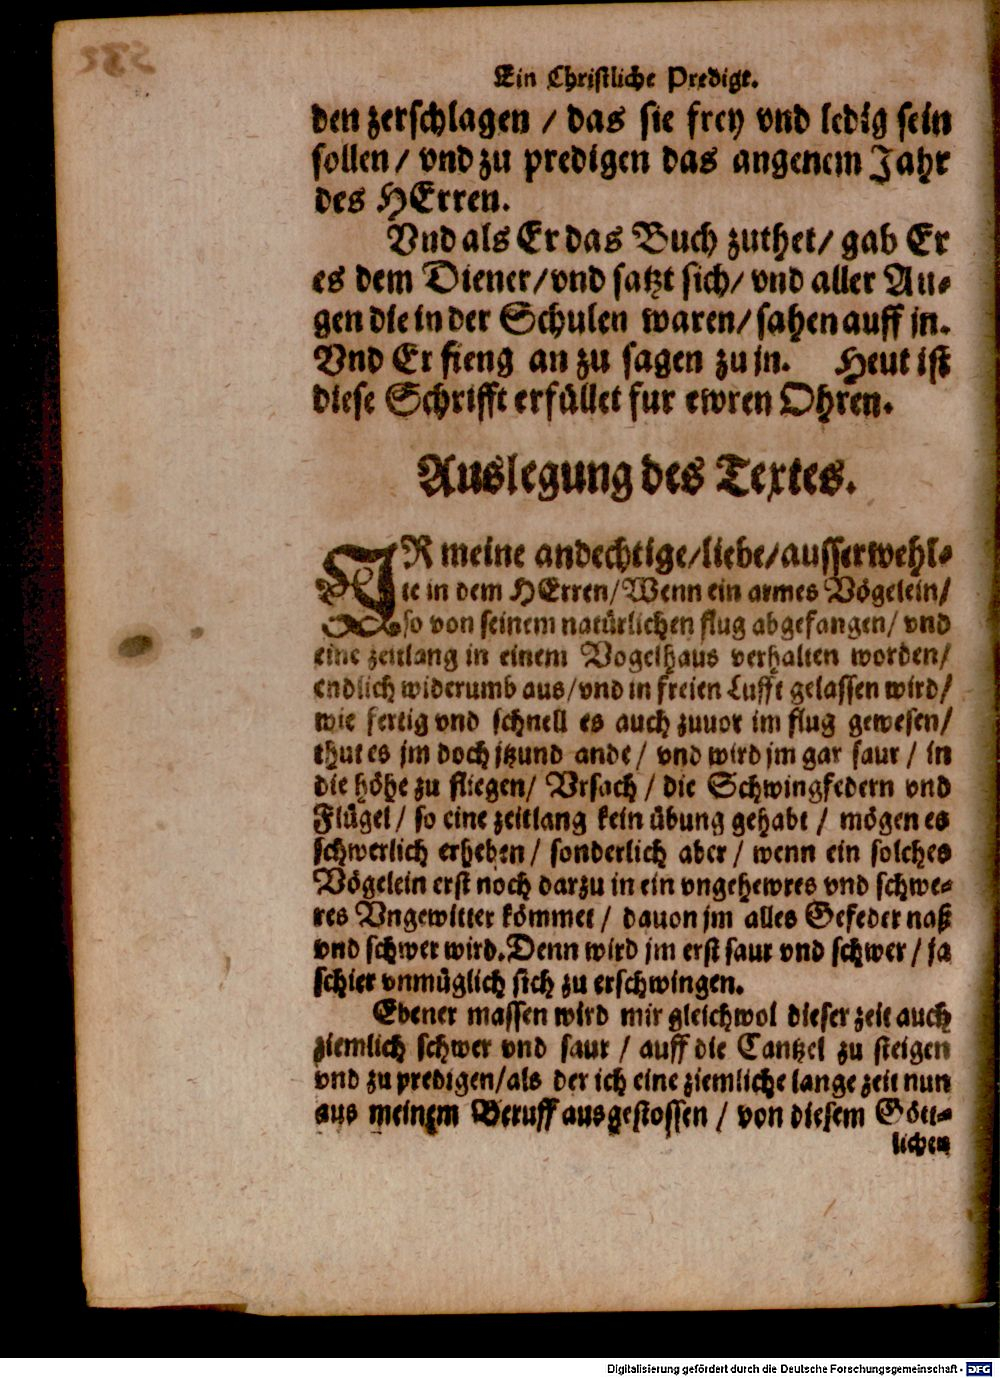 Ein Christliche Predigt.
den zerschlagen / das sie frey vnd ledig sein
sollen / vnd zu predigen das angenem Jahr
des HErren.
Vnd als Er das Buch zuthet / gab Er
es dem Diener / vnd satzt sich / vnd aller Au-
gen die in der Schulen waren / sahen auff jn.
Vnd Er fieng an zu sagen zu jn. Heut ist
diese Schrifft erfüllet fur ewren Ohren.
Auslegung des Textes.
IR meine andechtige / liebe / ausserwehl-
te in dem HErren / Wenn ein armes Vögelein /
so von seinem natürlichen flug abgefangen / vnd
eine zeitlang in einem Vogelhaus verhalten worden /
endlich widerumb aus / vnd in freien Lufft gelassen wird /
wie fertig vnd schnell es auch zuuor im flug gewesen /
thut es jm doch jtzund ande / vnd wird jm gar saur / in
die höhe zu fliegen / Vrsach / die Schwingfedern vnd
Flügel / so eine zeitlang kein übung gehabt / mögen es
schwerlich erheben / sonderlich aber / wenn ein solches
Vögelein erst noch darzu in ein vngehewres vnd schwe-
res Vngewitter kömmet / dauon jm alles Gefeder naß
vnd schwer wird. Denn wird jm erst saur vnd schwer / ja
schier vnmüglich sich zu erschwingen.
Ebener massen wird mir gleichwol dieser zeit auch
ziemlich schwer vnd saur / auff die Cantzel zu steigen
vnd zu predigen / als der ich eine ziemliche lange zeit nun
aus meinem Beruff ausgestossen / von diesem Gött-
lichen
Digitalisierung gefördert durch die Deutsche Forschungsgemeinschaft - DFG